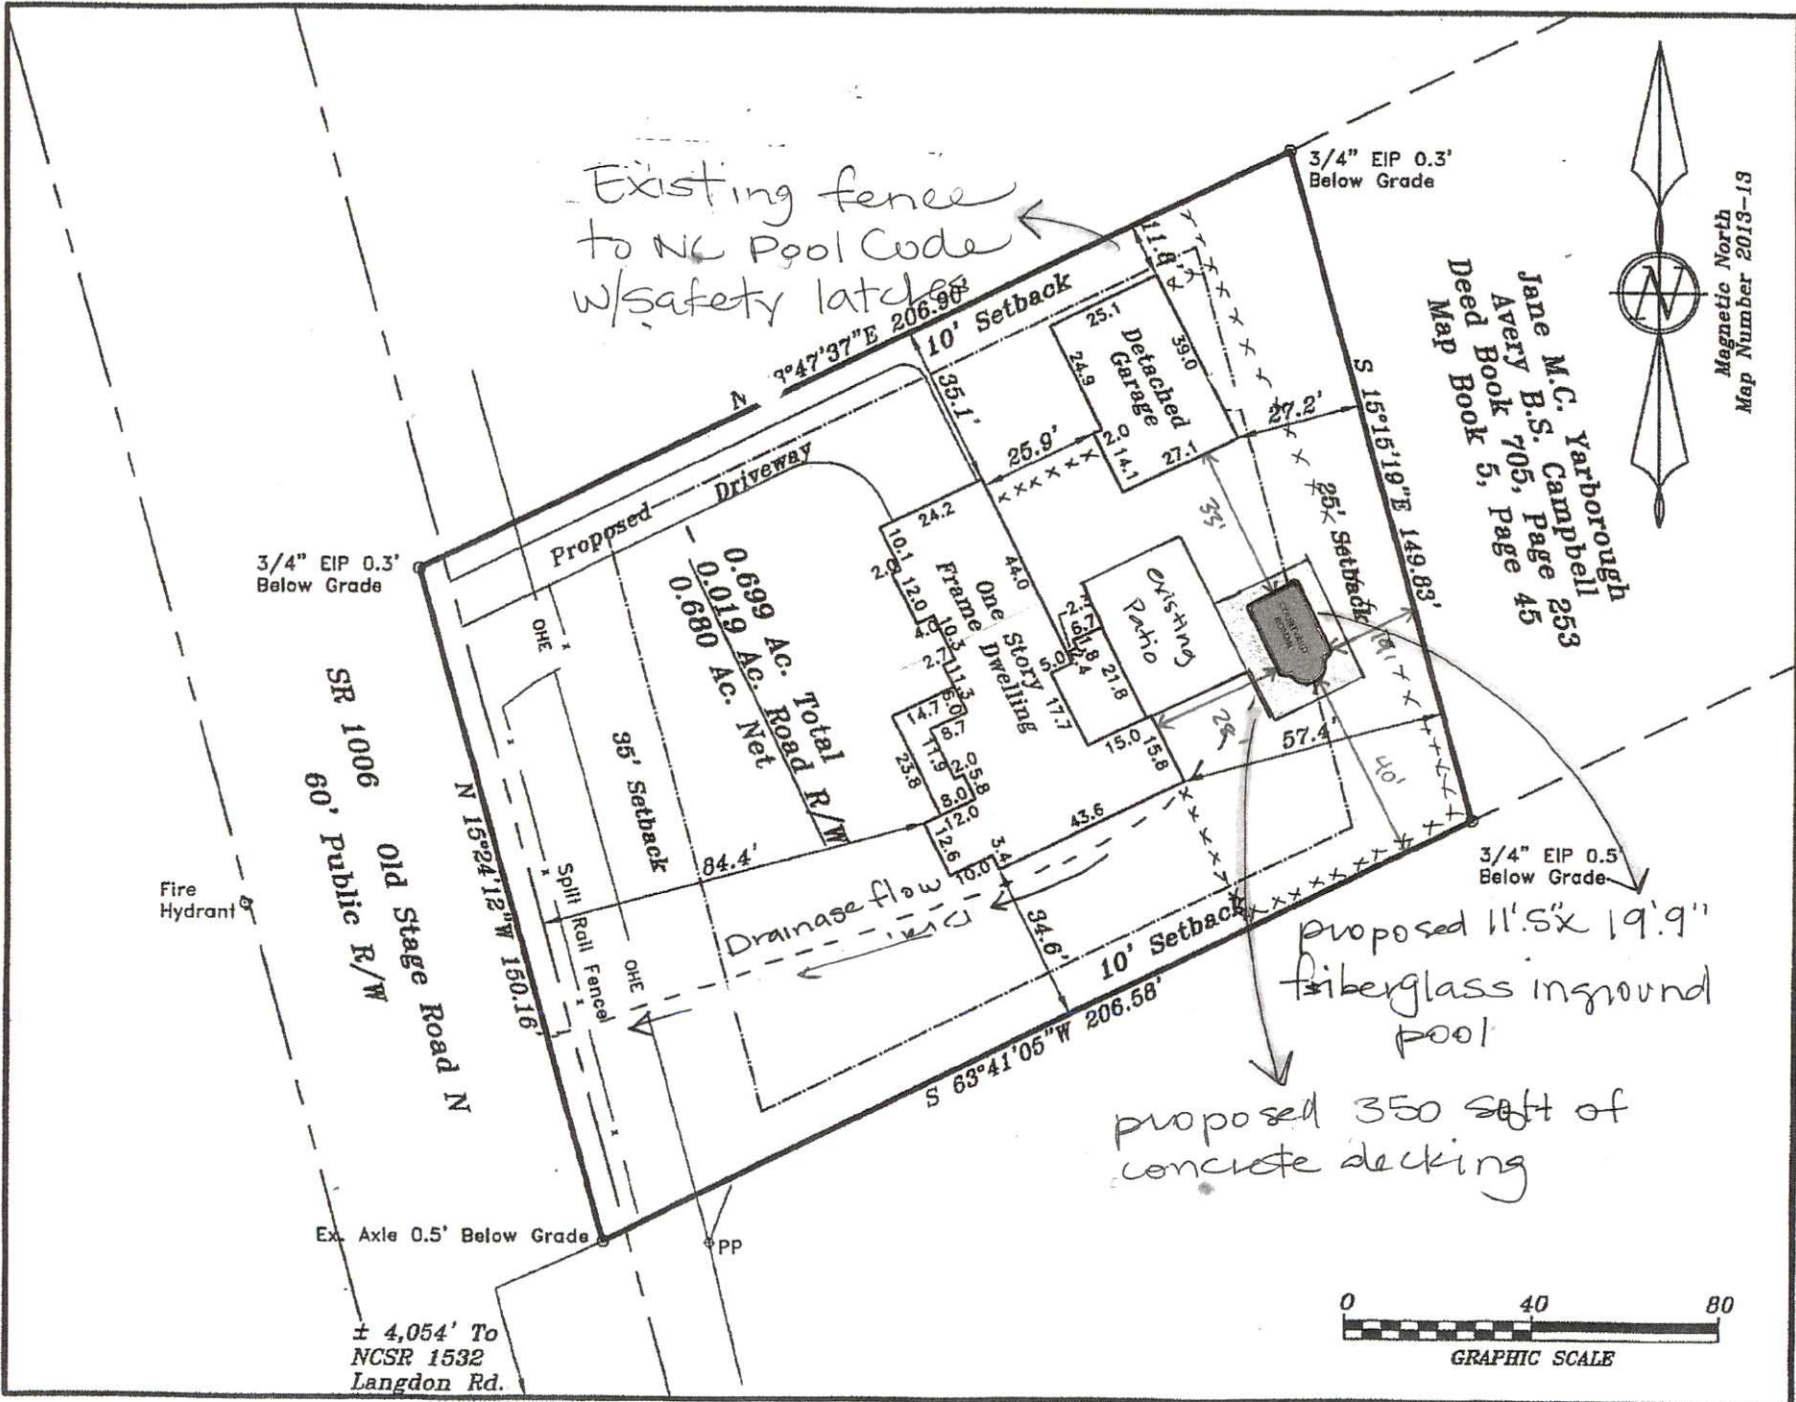 Existing fence
to NC Pool Code
w/safety latches
3/4" EIP 0.3'
Below Grade
Magnetic North
Map Number 2013-13
N
Jane M.C. Yarborough
Avery B.S. Campbell
Deed Book 705, Page 253
Map Book 5, Page 45
N °47'37"E 206.90'
10' Setback
11.8'
25.1
Detached
Garage
24.9
39.0
2.0
14.1
27.1
27.2'
S 15°15'19"E 149.83'
25' Setback
35.1'
25.9'
Proposed Driveway
3/4" EIP 0.3'
Below Grade
24.2
10.1
2.0
12.0
4.0
10.3
2.7
11.3
6.0
14.7
8.7
11.9
23.8
2.0
5.8
8.0
12.0
12.6
10.0
3.4
43.6
44.0
One Story
Frame Dwelling
5.0
17.7
15.0
15.8
21.8
existing
Patio
35'
19'
28'
40'
57.4'
0.699 Ac. Total
0.019 Ac. Road R/W
0.680 Ac. Net
OHE
35' Setback
84.4'
SR 1006 Old Stage Road N
60' Public R/W
N 15°24'12"W 150.16'
Split Rail Fence
OHE
Fire
Hydrant
Drainage flow
34.6'
10' Setback
S 63°41'05"W 206.58'
3/4" EIP 0.5'
Below Grade
proposed 11'.5" x 19'.9"
fiberglass inground
pool
proposed 350 sqft of
concrete decking
Ex. Axle 0.5' Below Grade
PP
± 4,054' To
NCSR 1532
Langdon Rd.
0 40 80
GRAPHIC SCALE